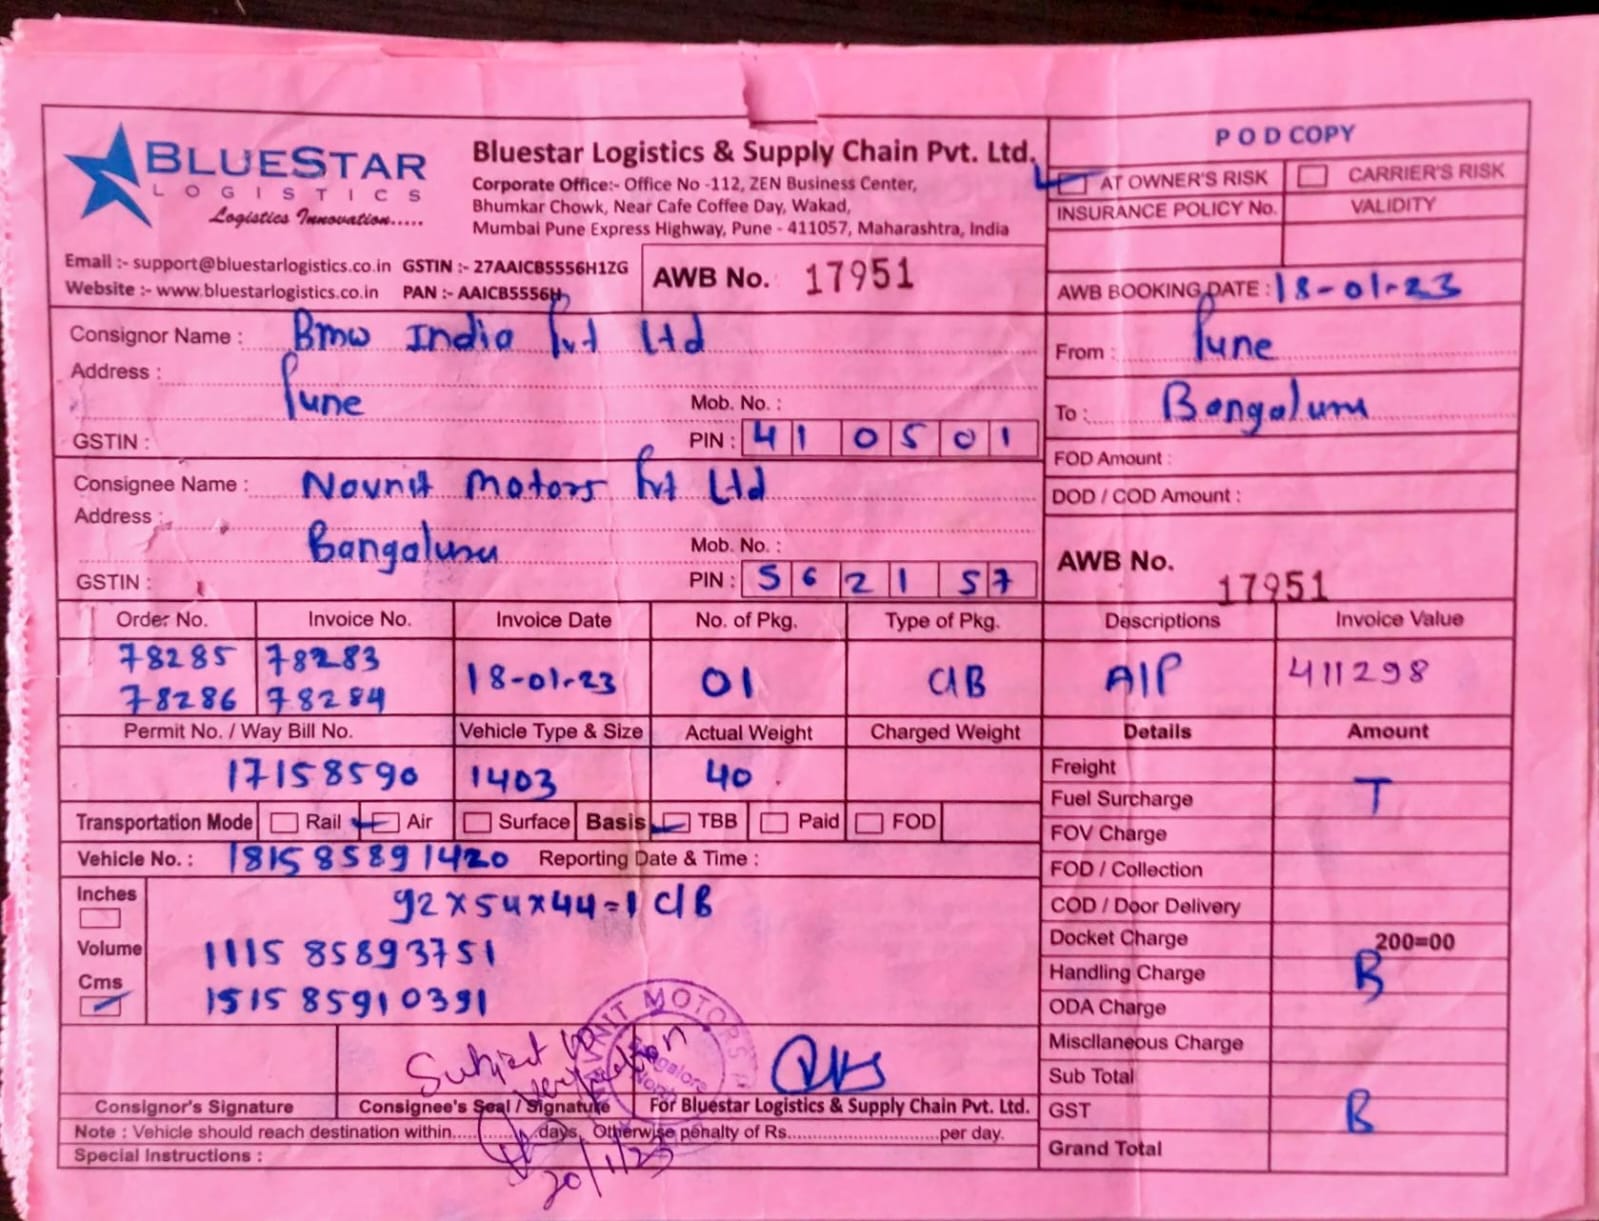 BLUESTAR
LOGISTICS
Logistics Innovation.....
Bluestar Logistics & Supply Chain Pvt. Ltd.
Corporate Office:- Office No -112, ZEN Business Center,
Bhumkar Chowk, Near Cafe Coffee Day, Wakad,
Mumbai Pune Express Highway, Pune - 411057, Maharashtra, India
Email :- support@bluestarlogistics.co.in GSTIN :- 27AAICB5556H1ZG
Website :- www.bluestarlogistics.co.in PAN :- AAICB5556H
AWB No. 17951
P O D COPY
AT OWNER'S RISK CARRIER'S RISK
INSURANCE POLICY No. VALIDITY
AWB BOOKING DATE : 18-01-23
Consignor Name : Bmw India Pvt Ltd
Address :
Pune
Mob. No. :
GSTIN :
PIN : 410501
From : Pune
To : Bangaluru
FOD Amount :
DOD / COD Amount :
Consignee Name : Navnit Motors Pvt Ltd
Address :
Bangaluru
Mob. No. :
GSTIN :
PIN : 562157
AWB No. 17951
Order No. Invoice No. Invoice Date No. of Pkg. Type of Pkg. Descriptions Invoice Value
78285 78283 18-01-23 01 C/B A/P 411298
78286 78284
Permit No. / Way Bill No. Vehicle Type & Size Actual Weight Charged Weight Details Amount
17158590 1403 40
Transportation Mode Rail Air Surface Basis TBB Paid FOD
Vehicle No. : 181585891420 Reporting Date & Time :
Inches
92x54x44=1 C/B
Volume
111585893751
Cms
151585910391
Freight
Fuel Surcharge T
FOV Charge
FOD / Collection
COD / Door Delivery
Docket Charge 200=00
Handling Charge B
ODA Charge
Miscllaneous Charge
Sub Total
GST B
Grand Total
Subject to
verification
NAVNIT MOTORS
Bangalore
North
Consignor's Signature Consignee's Seal / Signature For Bluestar Logistics & Supply Chain Pvt. Ltd.
Note : Vehicle should reach destination within..............days, Otherwise penalty of Rs..............................per day.
Special Instructions :
20/1/23